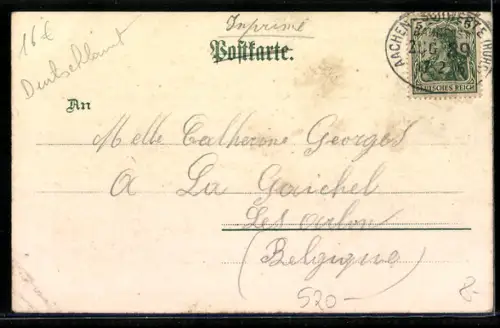 16 €
Deutschland
Imprimé
Postkarte.
AACHEN
ZUG 39
DEUTSCHES REICH
An
Melle Catherine Georges
à La Gaichel
Les Arlon
(Belgique)
520-